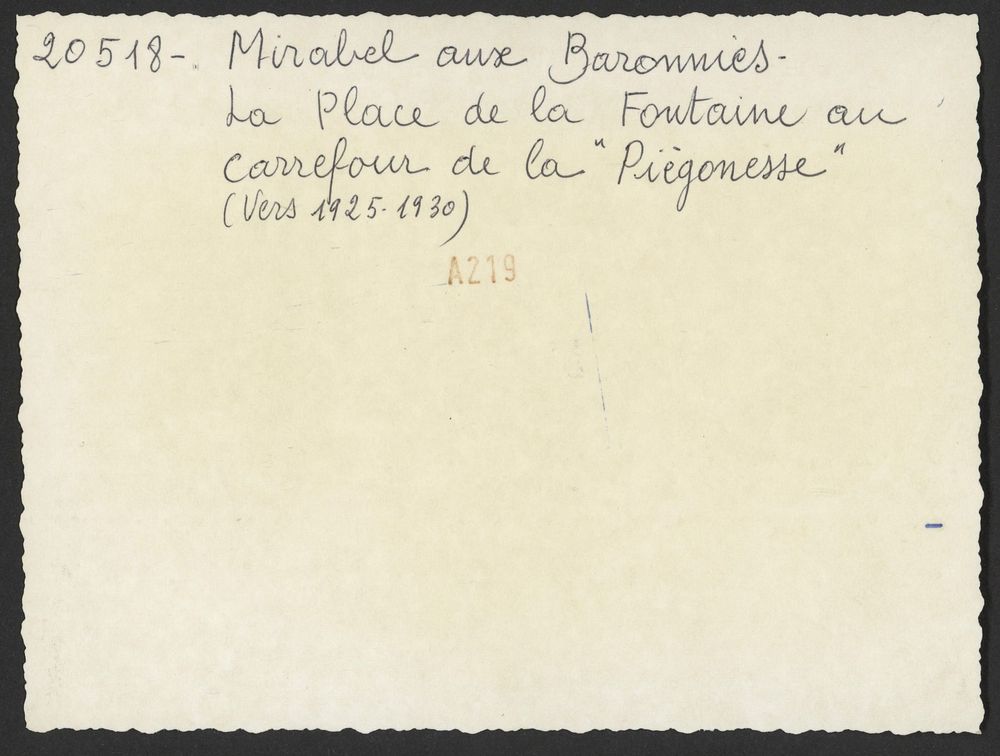 20518-. Mirabel aux Baronnies-
La Place de la Fontaine au
carrefour de la "Piégonesse"
(Vers 1925-1930)
A219